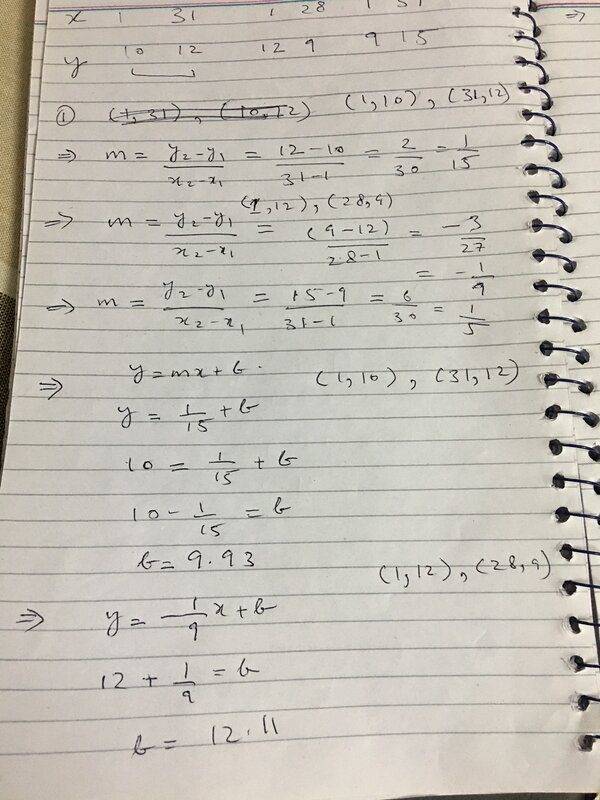 x 1 31 1 28 1 31
y 10 12 12 9 9 15
① (1,31), (10,12) (1,10), (31,12)
⇒ m = y₂-y₁/x₂-x₁ = 12-10/31-1 = 2/30 = 1/15
(1,12), (28,9)
⇒ m = y₂-y₁/x₂-x₁ = (9-12)/28-1 = -3/27
= -1/9
⇒ m = y₂-y₁/x₂-x₁ = 15-9/31-1 = 6/30 = 1/5
⇒ y = mx + b. (1,10), (31,12)
y = 1/15 + b
10 = 1/15 + b
10 - 1/15 = b
b = 9.93
(1,12), (28,9)
⇒ y = -1/9 x + b
12 + 1/9 = b
b = 12.11
⇒